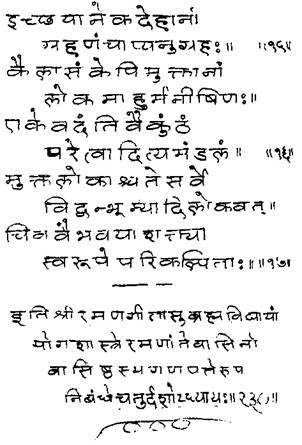 इच्छया नैकदेहानां
ग्रहणं चाप्यनुग्रहः॥ ॥१५॥
कैलासं केपि मुक्तानां
लोकमाहुर्मनीषिणः॥
एके वदंति वैकुंठं
परेत्वादित्यमंडलं॥ ॥१६॥
मुक्तलोकाश्च ते सर्वे
विद्वन्भूम्यादिलोकवत्॥
चित्रवैभवया शक्त्या
स्वरूपे परिकल्पिताः॥ ॥१७॥
इति श्रीरमणगीतासु ब्रह्मविद्यायां
योगशास्त्रे रमणांतेवासिनो
वासिष्ठस्य गणपतेरुप
निबंधे चतुर्दशोऽध्यायः॥२३८॥